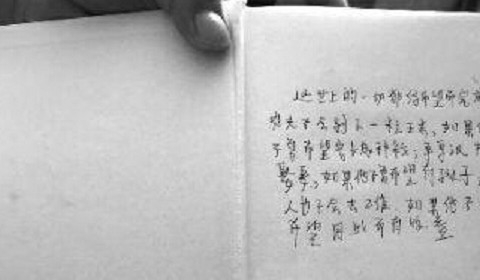 这世上的一切都借希望而完
农夫不会剥下一粒玉米,如果他
不曾希望它长成种粒;单身汉
娶妻,如果他不曾希望有孩子;
人也不会去工作,如果他不
希望因此而有收益